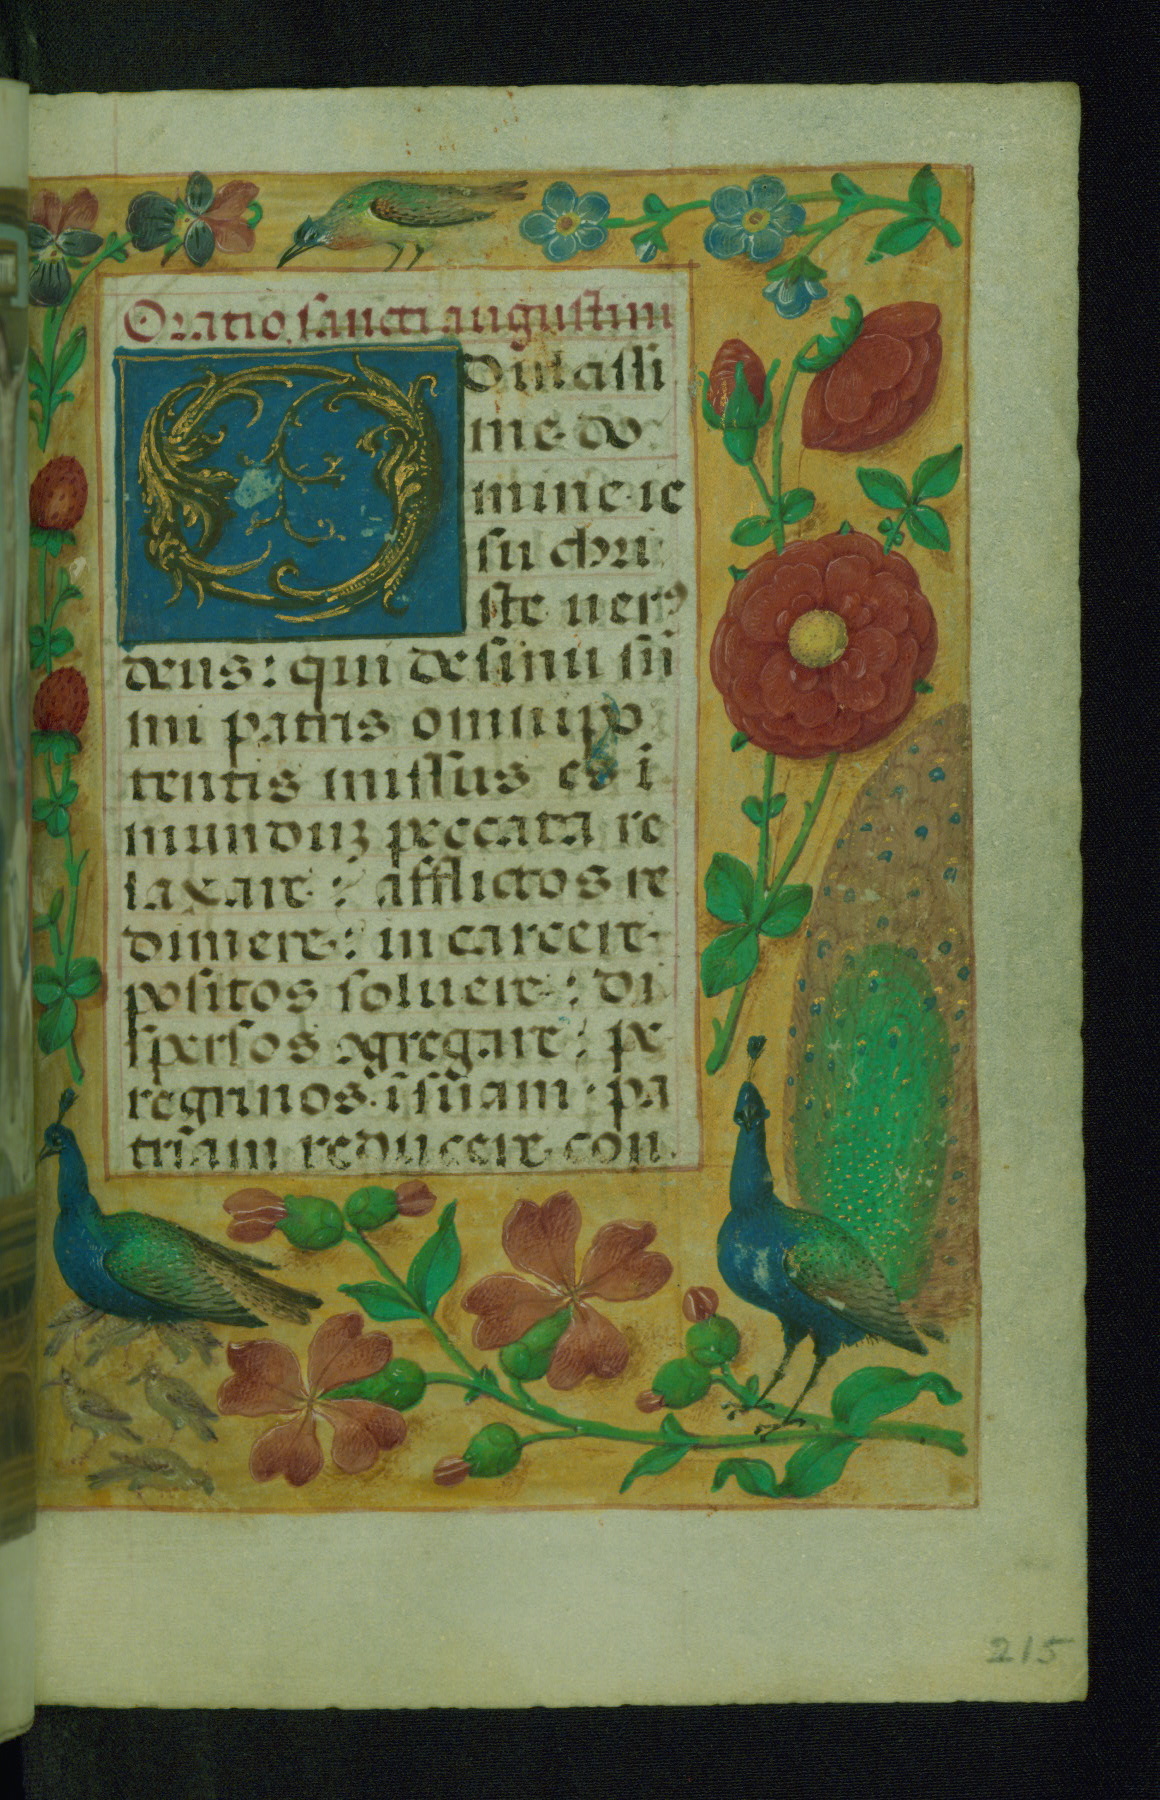 Oratio sancti augustini
O Dulcissi
me do
mine ie
su chri
ste uerꝰ
deus: qui de sinu sū
mi patris omnipo
tentis missus es ī
mundūz peccata re
laxare: afflictos re
dimere: in carcere
positos soluere: di
spersos ɔgregare: pe
regrinos ī suam pa
triam reducere con
215